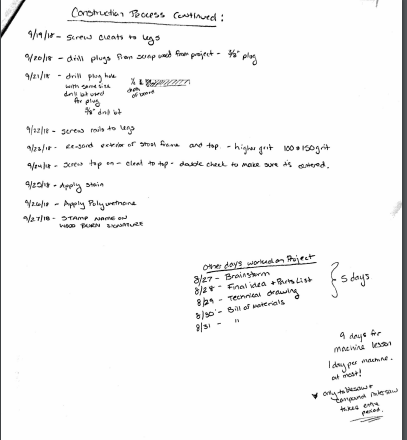 Construction Process Continued:
9/19/18 - Screw cleats to legs
9/20/18 - drill plugs from scrap wood from project - 3/8" plug
9/21/18 - drill plug hole
with same size
drill bit used
for plug
3/8" drill bit
of board
9/22/18 - Screw rails to legs
9/23/18 - Re-sand exterior of stool frame and top. - higher grit 100 & 150 grit
9/24/18 - Screw top on - cleat to top - double check to make sure it's centered.
9/25/18 - Apply Stain
9/26/18 - Apply Polyurethane
9/27/18 - STAMP NAME OR
WOOD BURN SIGNATURE
Other day's worked on Project
8/27 - Brainstorm
8/28 - Final idea + Parts List
8/29 - Technical drawing
8/30 - Bill of Materials
8/31 - "
5 days
9 days for
machine lesson
1 day per machine.
at most!
only tablesaw +
compound mitresaw
takes entire
period.